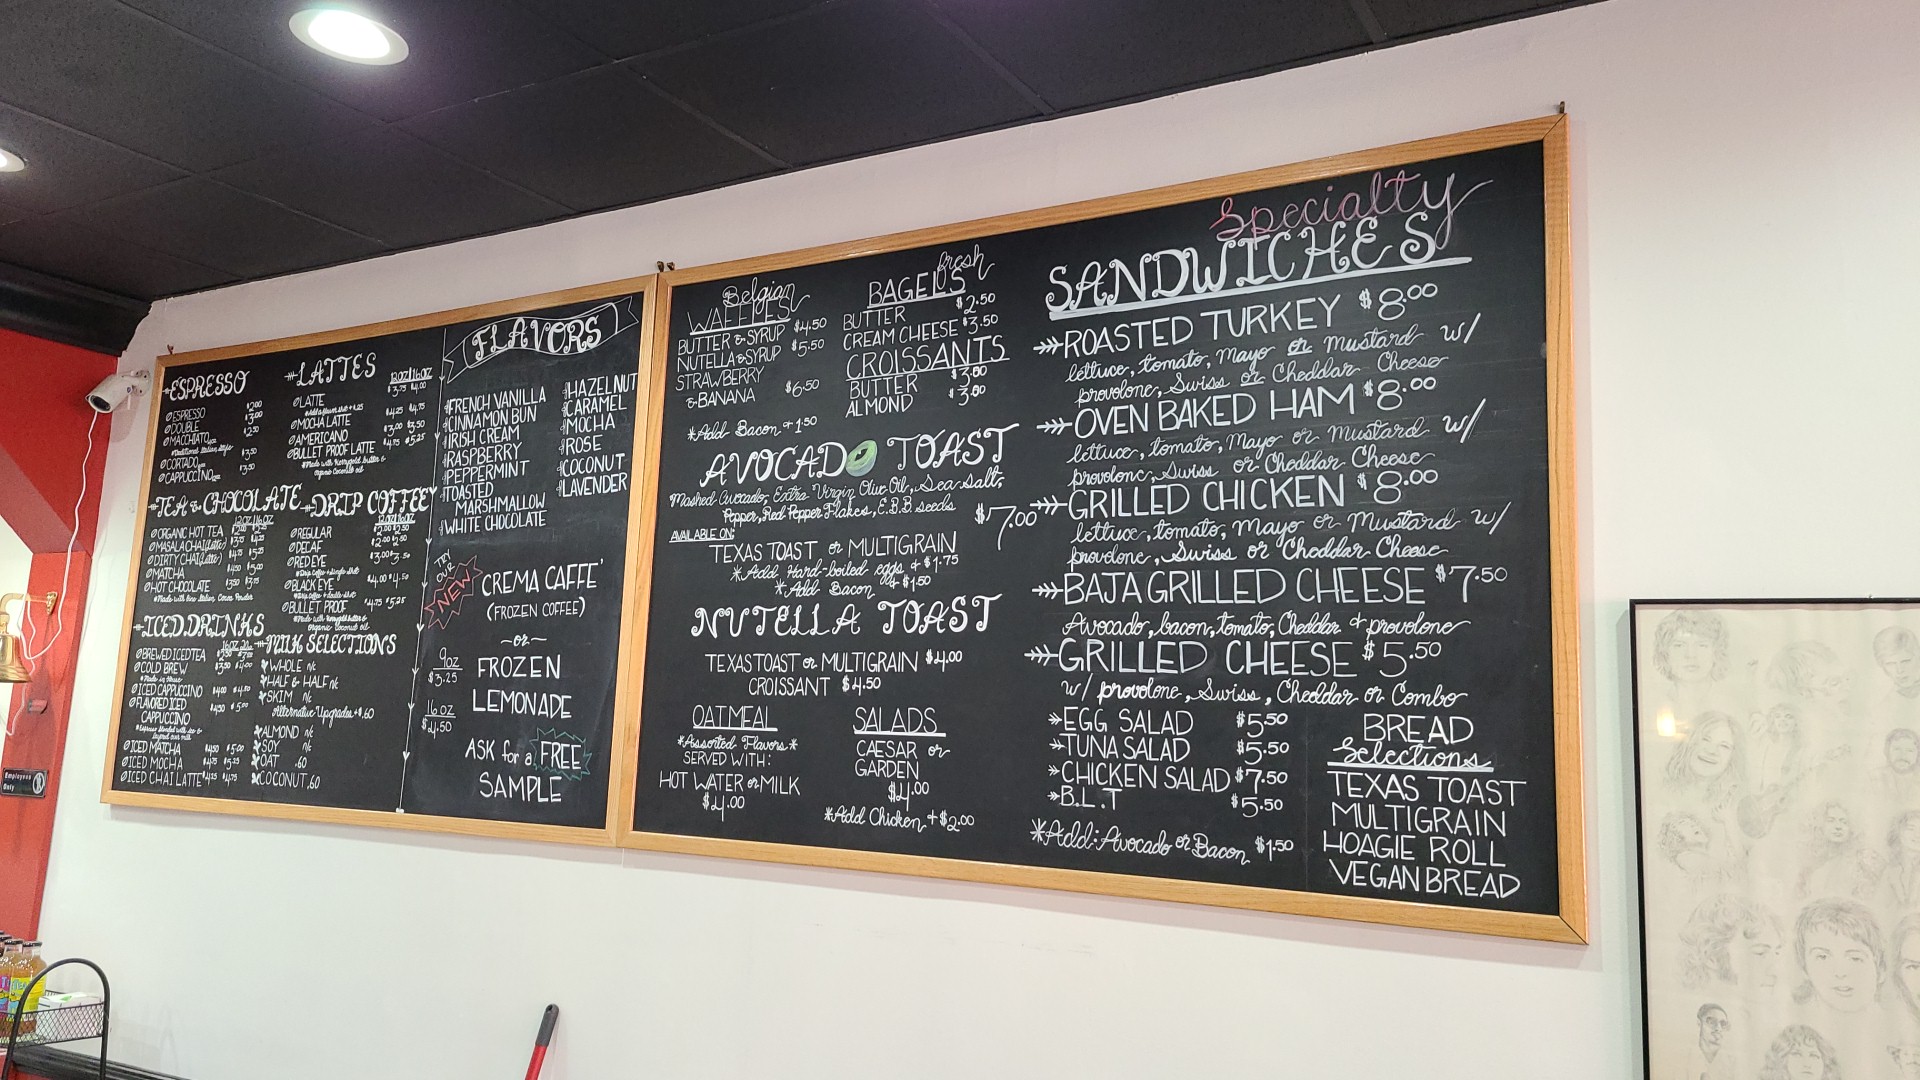 ESPRESSO
ESPRESSO $2.00
DOUBLE $3.00
MACCHIATO $2.50
*Traditional Italian Style
CORTADO $3.50
CAPPUCCINO $3.50
LATTES
12OZ|16OZ
LATTE $3.75 $4.00
MOCHA LATTE $4.25 $4.75
AMERICANO $3.00 $3.50
BULLET PROOF LATTE $4.75 $5.25
*Made with Kerrygold butter &
Organic Coconut oil
TEA & CHOCOLATE
12OZ|16OZ
ORGANIC HOT TEA
MASALA CHAI (Latte)
DIRTY CHAI (Latte)
MATCHA $4.75 $5.00
HOT CHOCOLATE
DRIP COFFEE
12OZ|16OZ
REGULAR
DECAF
RED EYE $3.00 $3.50
*Drip Coffee + Single shot
BLACK EYE $4.00 $4.50
*Drip Coffee + double shot
BULLET PROOF $4.75 $5.25
*Made with Kerrygold butter &
Organic Coconut oil
ICED DRINKS
BREWED ICED TEA
COLD BREW $3.50 $4.00
*Made in House
ICED CAPPUCCINO $4.00 $4.50
FLAVORED ICED
CAPPUCCINO $4.50 $5.00
ICED MATCHA $4.50 $5.00
ICED MOCHA $4.75 $5.25
ICED CHAI LATTE $4.25 $4.75
MILK SELECTIONS
WHOLE n/c
HALF & HALF n/c
SKIM n/c
Alternative Upgrades +$.60
ALMOND n/c
SOY n/c
OAT .60
COCONUT .60
FLAVORS
FRENCH VANILLA
CINNAMON BUN
IRISH CREAM
RASPBERRY
PEPPERMINT
TOASTED
MARSHMALLOW
WHITE CHOCOLATE
HAZELNUT
CARAMEL
MOCHA
ROSE
COCONUT
LAVENDER
TRY
OUR
NEW
CREMA CAFFE'
(FROZEN COFFEE)
~or~
FROZEN
LEMONADE
9oz
$3.25
16 OZ
$4.50
ASK for a FREE
SAMPLE
Belgian
WAFFLES
BUTTER & SYRUP $4.50
NUTELLA & SYRUP $5.50
STRAWBERRY
& BANANA $6.50
*Add Bacon + 1.50
fresh
BAGELS
BUTTER $2.50
CREAM CHEESE $3.50
CROISSANTS
BUTTER $3.00
ALMOND
AVOCADO TOAST
Mashed Avocado, Extra Virgin Olive Oil, Sea Salt,
Pepper, Red Pepper Flakes, E.B.B. seeds $7.00
AVAILABLE ON:
TEXAS TOAST or MULTIGRAIN
*Add Hard-boiled eggs + $1.75
*Add Bacon + $1.50
NUTELLA TOAST
TEXAS TOAST or MULTIGRAIN $4.00
CROISSANT $4.50
OATMEAL
*Assorted Flavors*
SERVED WITH:
HOT WATER or MILK
$4.00
SALADS
CAESAR or
GARDEN
$4.00
*Add Chicken + $2.00
Specialty
SANDWICHES
ROASTED TURKEY $8.00
lettuce, tomato, Mayo or Mustard w/
provolone, Swiss or Cheddar Cheese
OVEN BAKED HAM $8.00
lettuce, tomato, Mayo or Mustard w/
provolone, Swiss or Cheddar Cheese
GRILLED CHICKEN $8.00
lettuce, tomato, Mayo or Mustard w/
provolone, Swiss or Cheddar Cheese
BAJA GRILLED CHEESE $7.50
Avocado, bacon, tomato, Cheddar + provolone
GRILLED CHEESE $5.50
w/ provolone, Swiss, Cheddar or Combo
EGG SALAD $5.50
TUNA SALAD $5.50
CHICKEN SALAD $7.50
B.L.T $5.50
*Add: Avocado or Bacon $1.50
BREAD
Selections
TEXAS TOAST
MULTIGRAIN
HOAGIE ROLL
VEGAN BREAD
Employees
Only